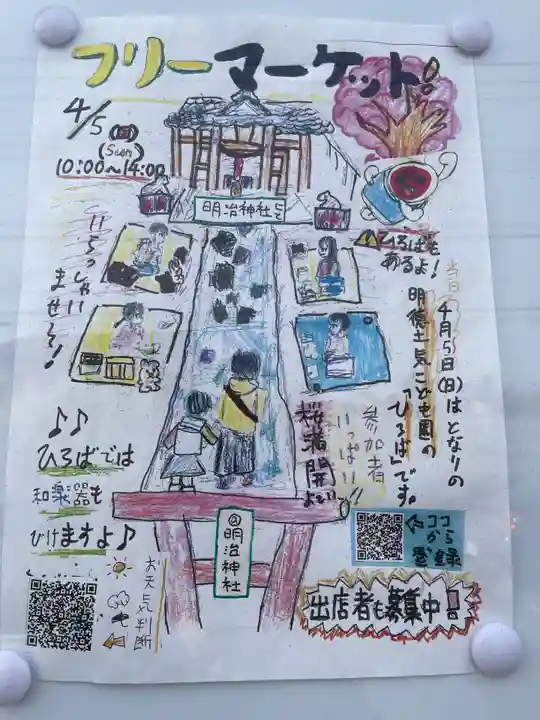 フリーマーケット!
4/5(日)
(Sun)
10:00~14:00
明治神社にて
いらっしゃい
ませ~!
ひろばも
あるよ!
当日4月5日(日)はとなりの
明徳土気こども園の
「ひろば」です。
参加者
いっぱい!!
桜満開だよ
♪♪
ひろばでは
和楽器も
ひけますよ♪
お天気判断
@明治神社
⇦ココ
から
登録
出店者も募集中!